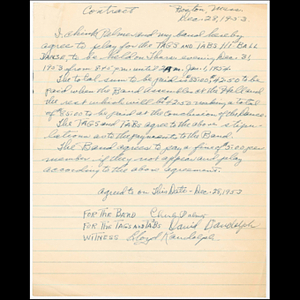 Contract
Boston, Mass
Dec-28, 1953.
I, Chink Palmer and my band hereby
agree to play for the TAGS AND TABS BALL
DANCE, to be held on Thurs. evening Dec. 31,
1953 from until Jan 1, 1954.
The total sum to be paid is $50.00, $42.50 to be
paid when the Band assembles at the Hall and
the rest which will be $42.50 making a total
of $85.00 to be paid at the conclusion of the dance.
The TAGS and TABS agree to the above stipu-
lations as to the payment to the Band.
The Band agrees to pay a fine of 5.00 per
member if they not appear and play
according to the above agreement.
Agreed to on This Date - Dec. 28, 1953
FOR THE BAND
FOR THE TAGS AND TABS David Randolph
WITNESS Lloyd Randolph